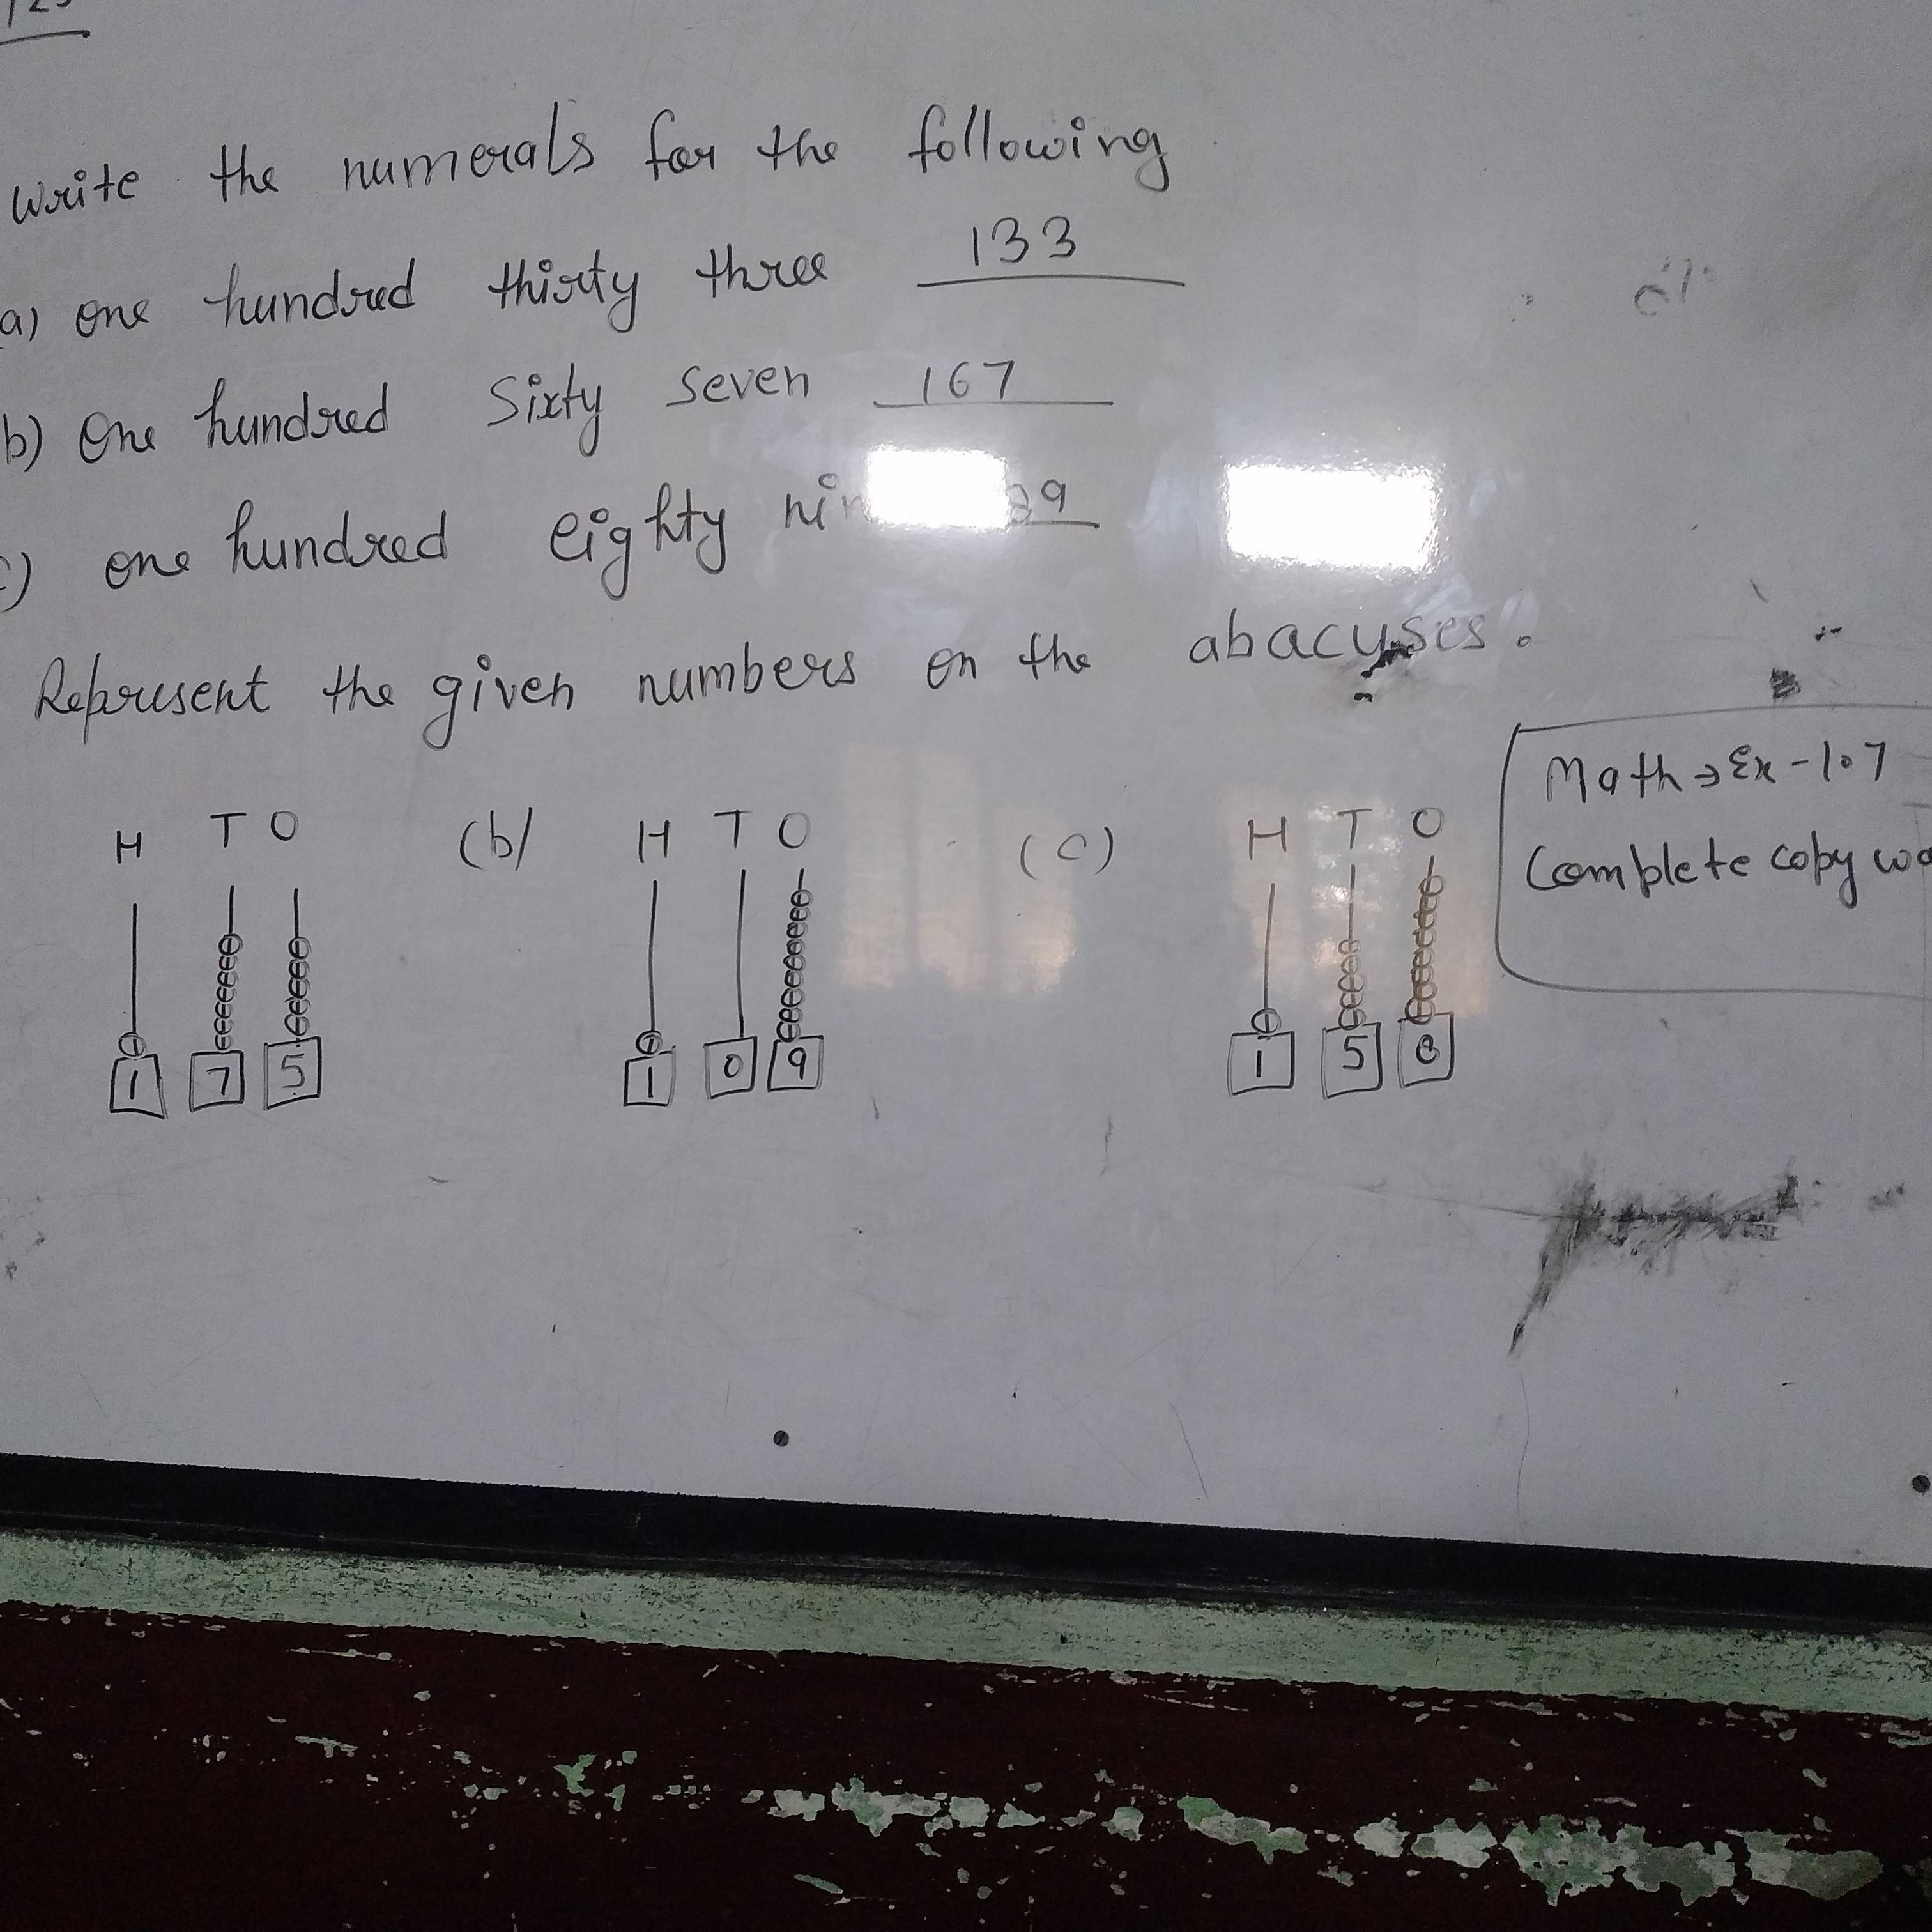 Write the numerals for the following
a) one hundred thirty three 133
b) One hundred Sixty seven 167
c) one hundred eighty 9
Represent the given numbers on the abacuses.
H T O (b) H T O (c) H T O
1 7 5 1 0 9 1 5 8
Math → Ex - 1.7
Complete copy